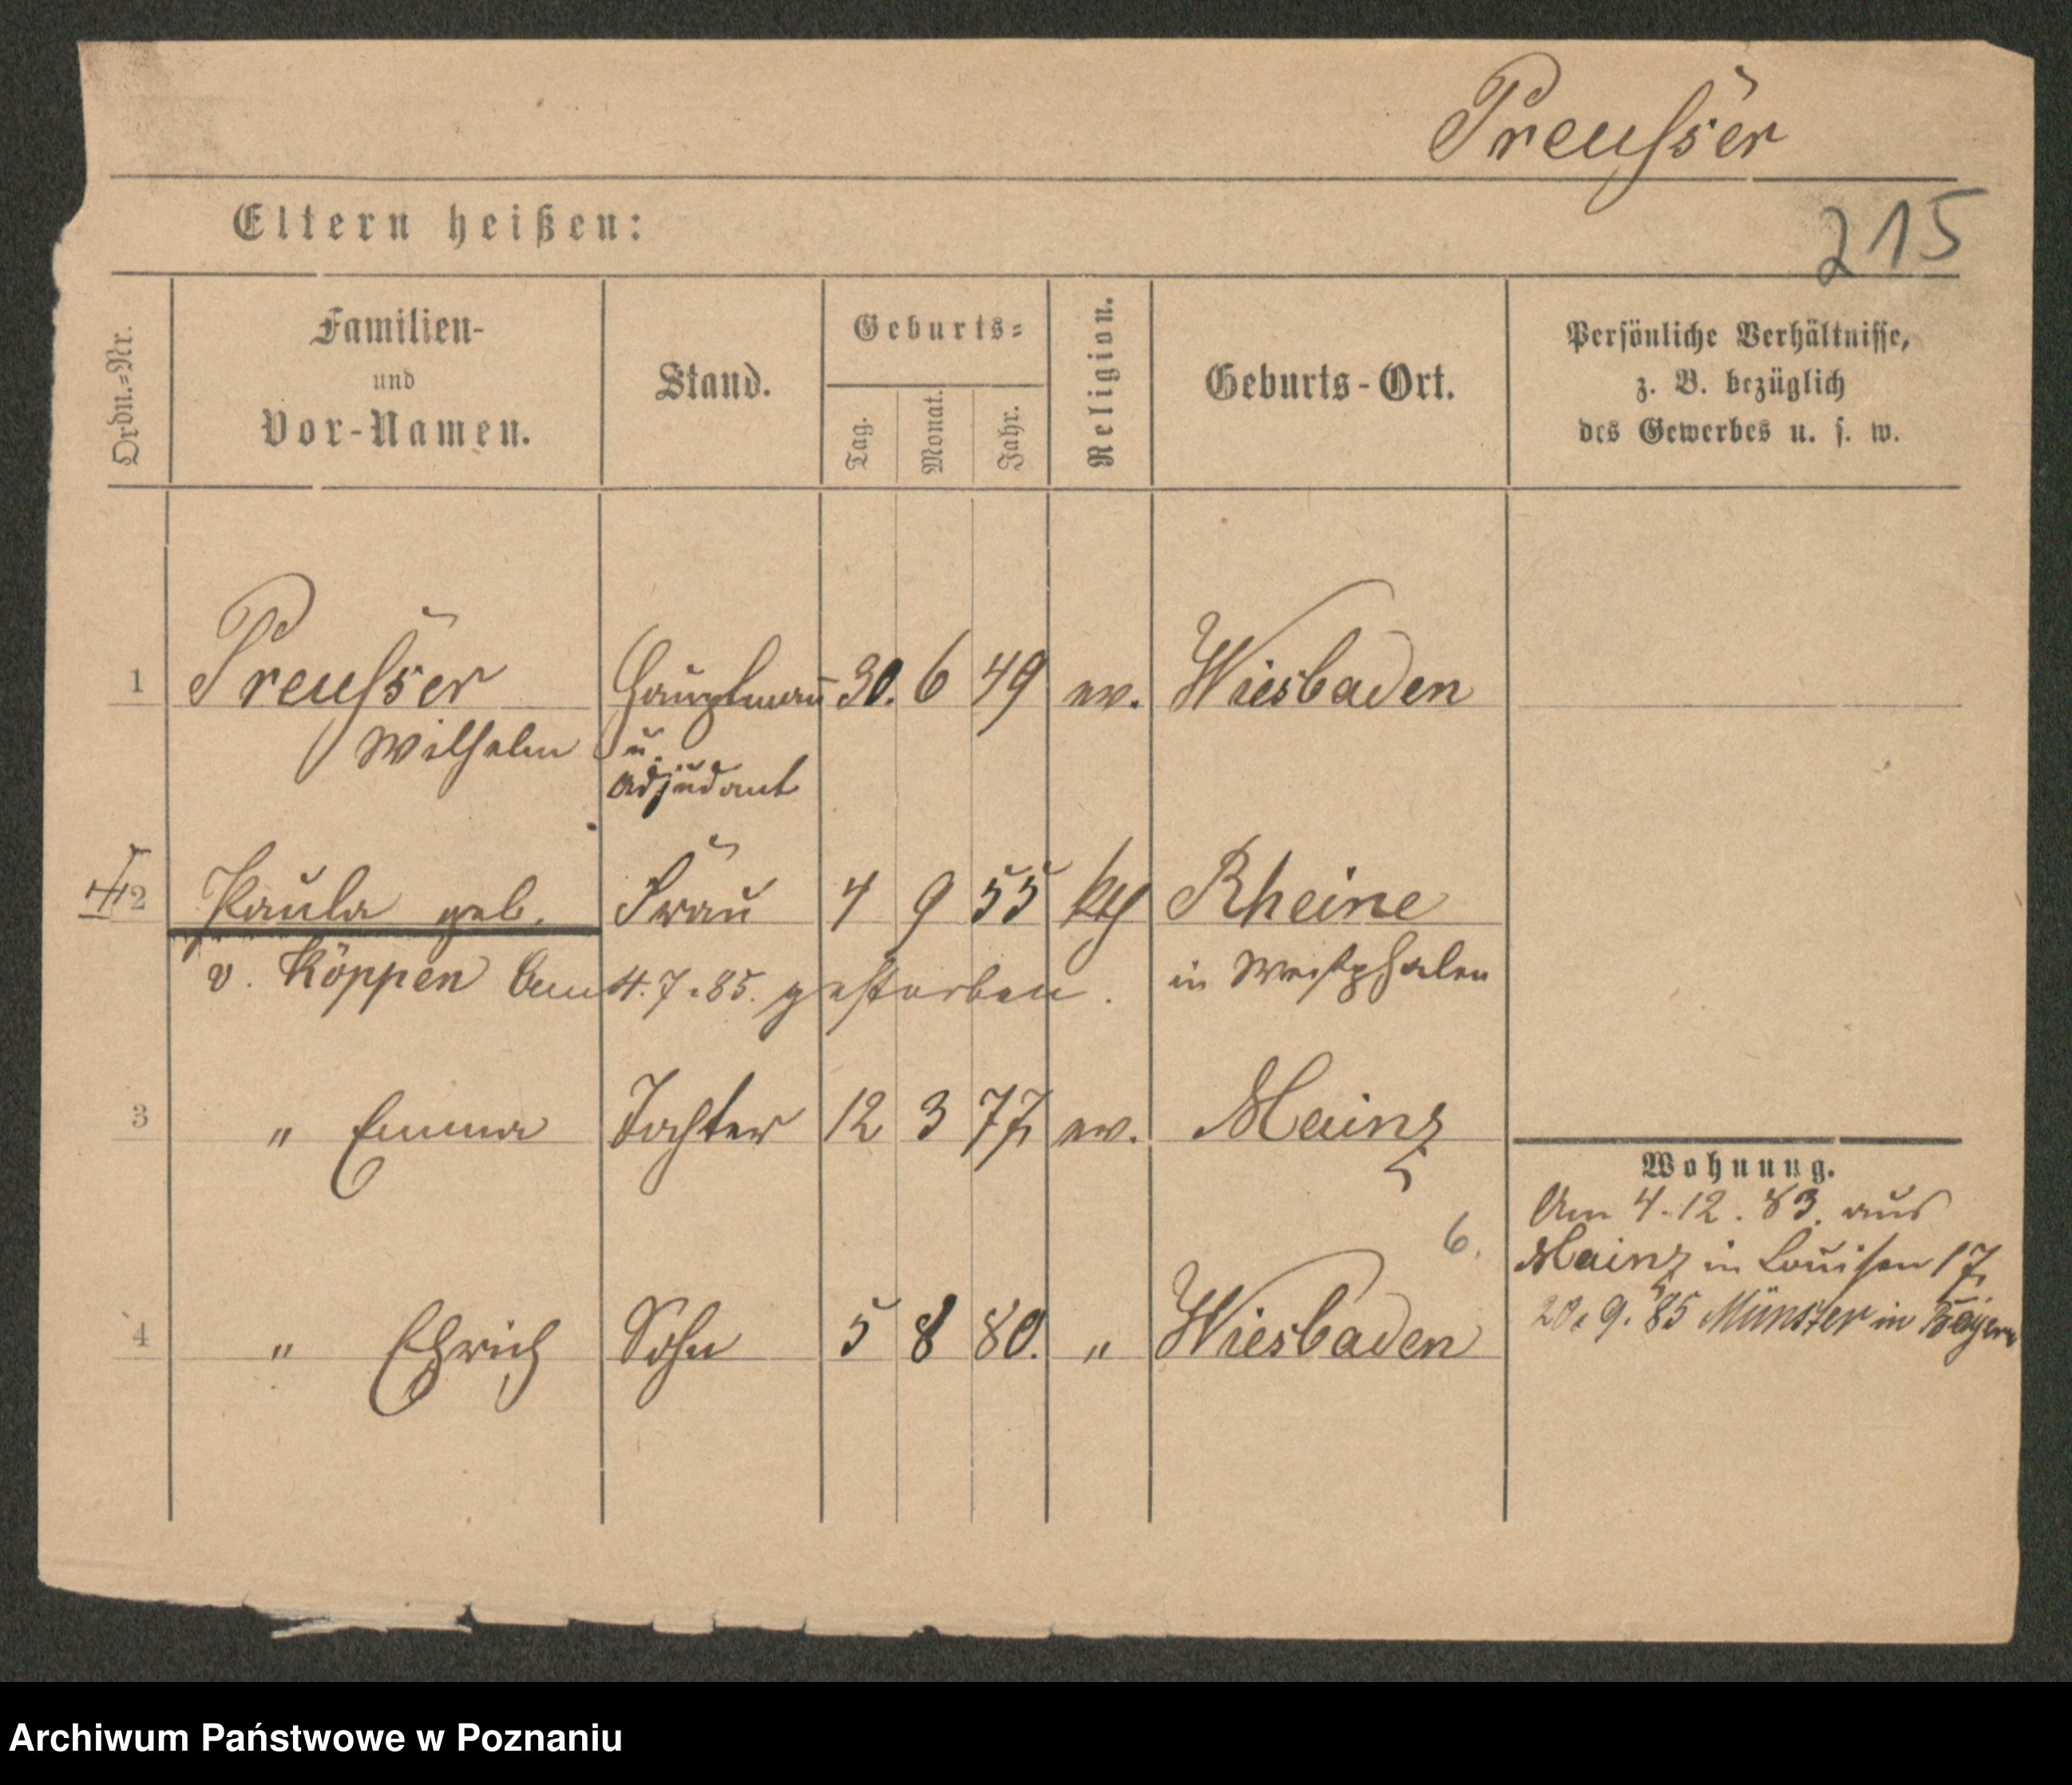 Preusser
Eltern heißen:
215
Ordn.=Nr.
Familien-
und
Vor-Namen.
Stand.
Geburts=
Tag.
Monat.
Jahr.
Religion.
Geburts-Ort.
Persönliche Verhältnisse,
z. B. bezüglich
des Gewerbes u. s. w.
1 Preusser Hauptmann 30. 6 49 ev. Wiesbaden
Wilhelm u.
Adjudant
2 Paula geb. Frau 4 9 55 kth Rheine
v. Köppen Am 4.7.85. gestorben. in Westphalen
3 " Emma Tochter 12 3 77 ev. Mainz
Wohnung.
Am 4.12.83. aus
6. Mainz in Louisen 17,
20.9.85 Münster in Bayern
4 " Ehrich Sohn 5 8 80. " Wiesbaden
Archiwum Państwowe w Poznaniu